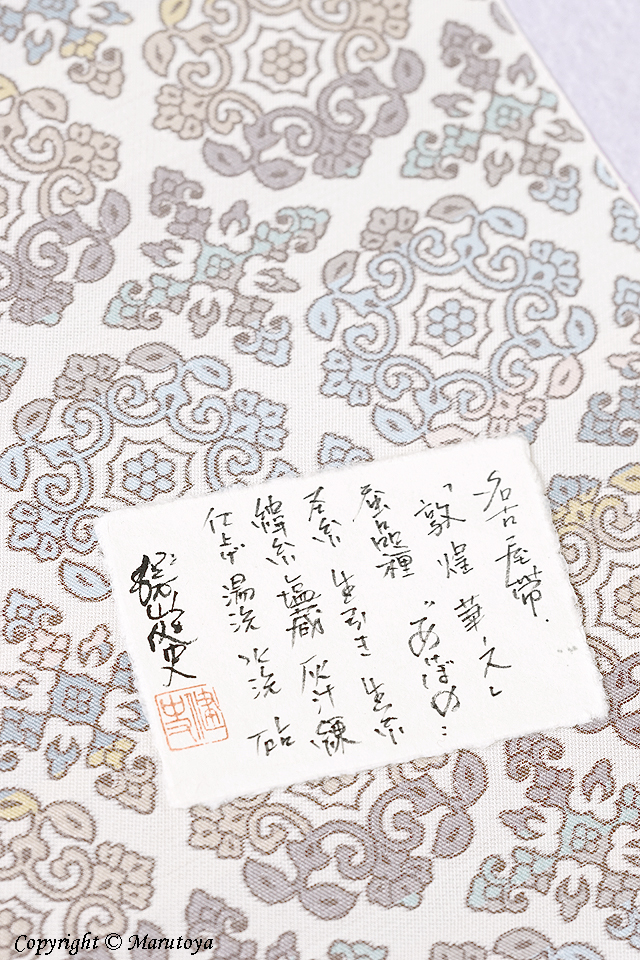 名古屋帯.
「敦煌 華文」
蚕品種 "あけぼの"
经糸 生引き 生糸
緯糸 塩蔵 灰汁練
仕上げ 湯洗 水洗 砧
勝山健史
健史
Copyright © Marutoya